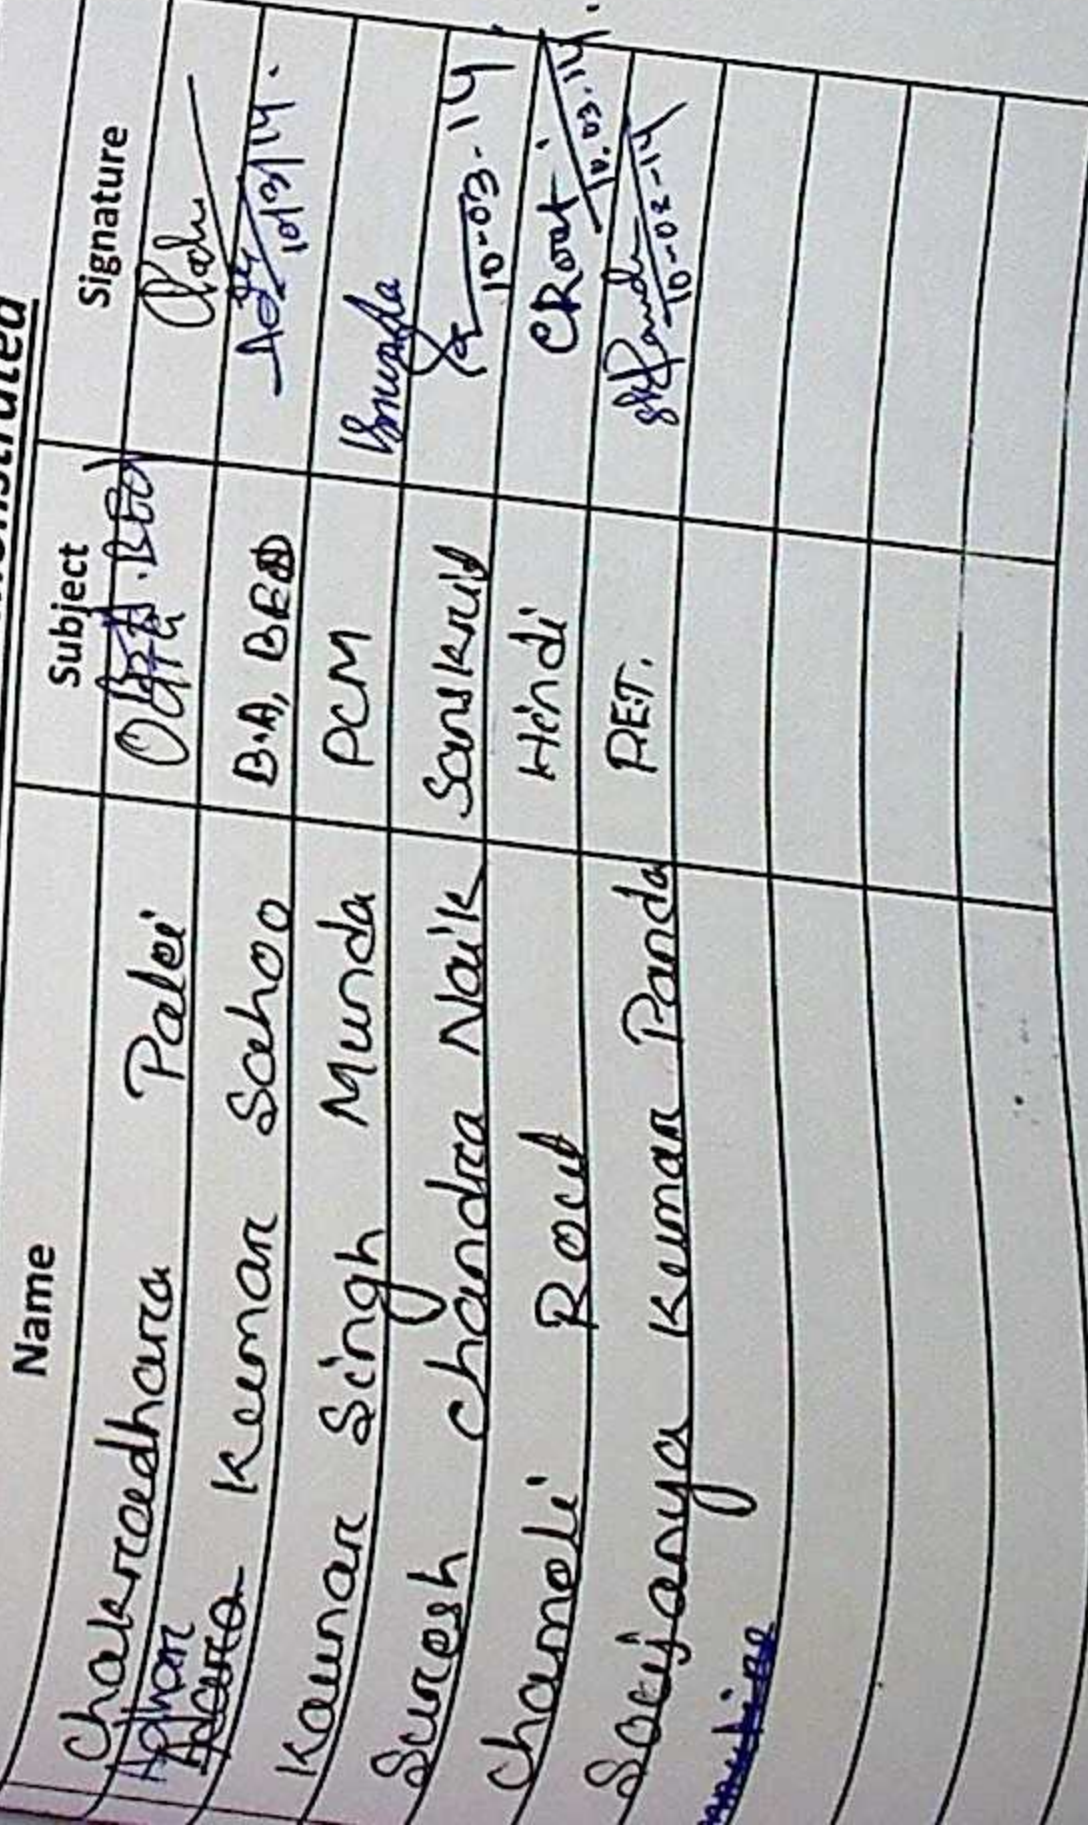 Name Subject Signature
Chakraedhara Palei
Adhar Kumar Sahoo B.A, BED 10/3/14.
Kaunar Singh Munda PCM Kmunda
Suresh Chandra Naik Sanskrit 10-03-14
Chameli Rout Hindi CRout 10.03.14.
Soujanya Kumar Panda P.E.T. 10-02-14